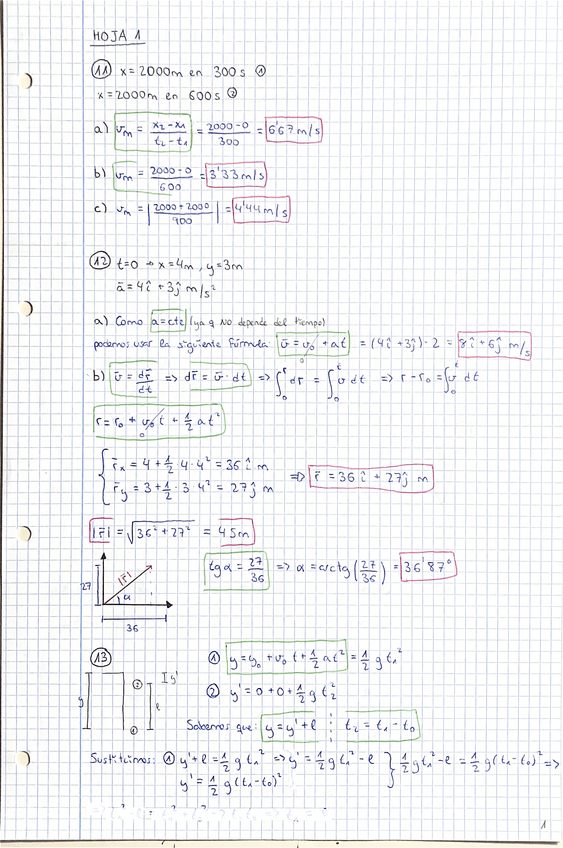 HOJA 1
11 x = 2000m en 300s ①
x = 2000m en 600s ②
a) v_m = (x₂-x₁)/(t₂-t₁) = (2000-0)/300 = 6'67 m/s
b) v_m = (2000-0)/600 = 3'33 m/s
c) v_m = |(2000+2000)/900| = 4'44 m/s
12 t=0 → x=4m, y=3m
ā = 4î + 3ĵ m/s²
a) Como a=cte (ya q NO depende del tiempo)
podemos usar la siguiente fórmula: v̄ = v₀ + at = (4î+3ĵ)·2 = 8î + 6ĵ m/s
0
b) v̄ = dr̄/dt => dr̄ = v̄·dt => ∫₀ʳ dr = ∫₀ᵗ v̄ dt => r-r₀ = ∫₀ᵗ v̄ dt
r = r₀ + v₀t + 1/2 at²
0
r̄x = 4 + 1/2·4·4² = 36 î m
r̄y = 3 + 1/2·3·4² = 27 ĵ m => r̄ = 36î + 27ĵ m
|r̄| = √(36² + 27²) = 45m
27 |r̄| α 36
tgα = 27/36 => α = arctg(27/36) = 36'87°
13 ① y = y₀ + v₀t + 1/2 at² = 1/2 g t₁²
y ② ① l y'
② y' = 0 + 0 + 1/2 g t₂²
Sabemos que: y = y' + l t₂ = t₁ - t₀
Sustituimos: ① y' + l = 1/2 g t₁² => y' = 1/2 g t₁² - l } 1/2 g t₁² - l = 1/2 g(t₁-t₀)² =>
y' = 1/2 g(t₁-t₀)²
1